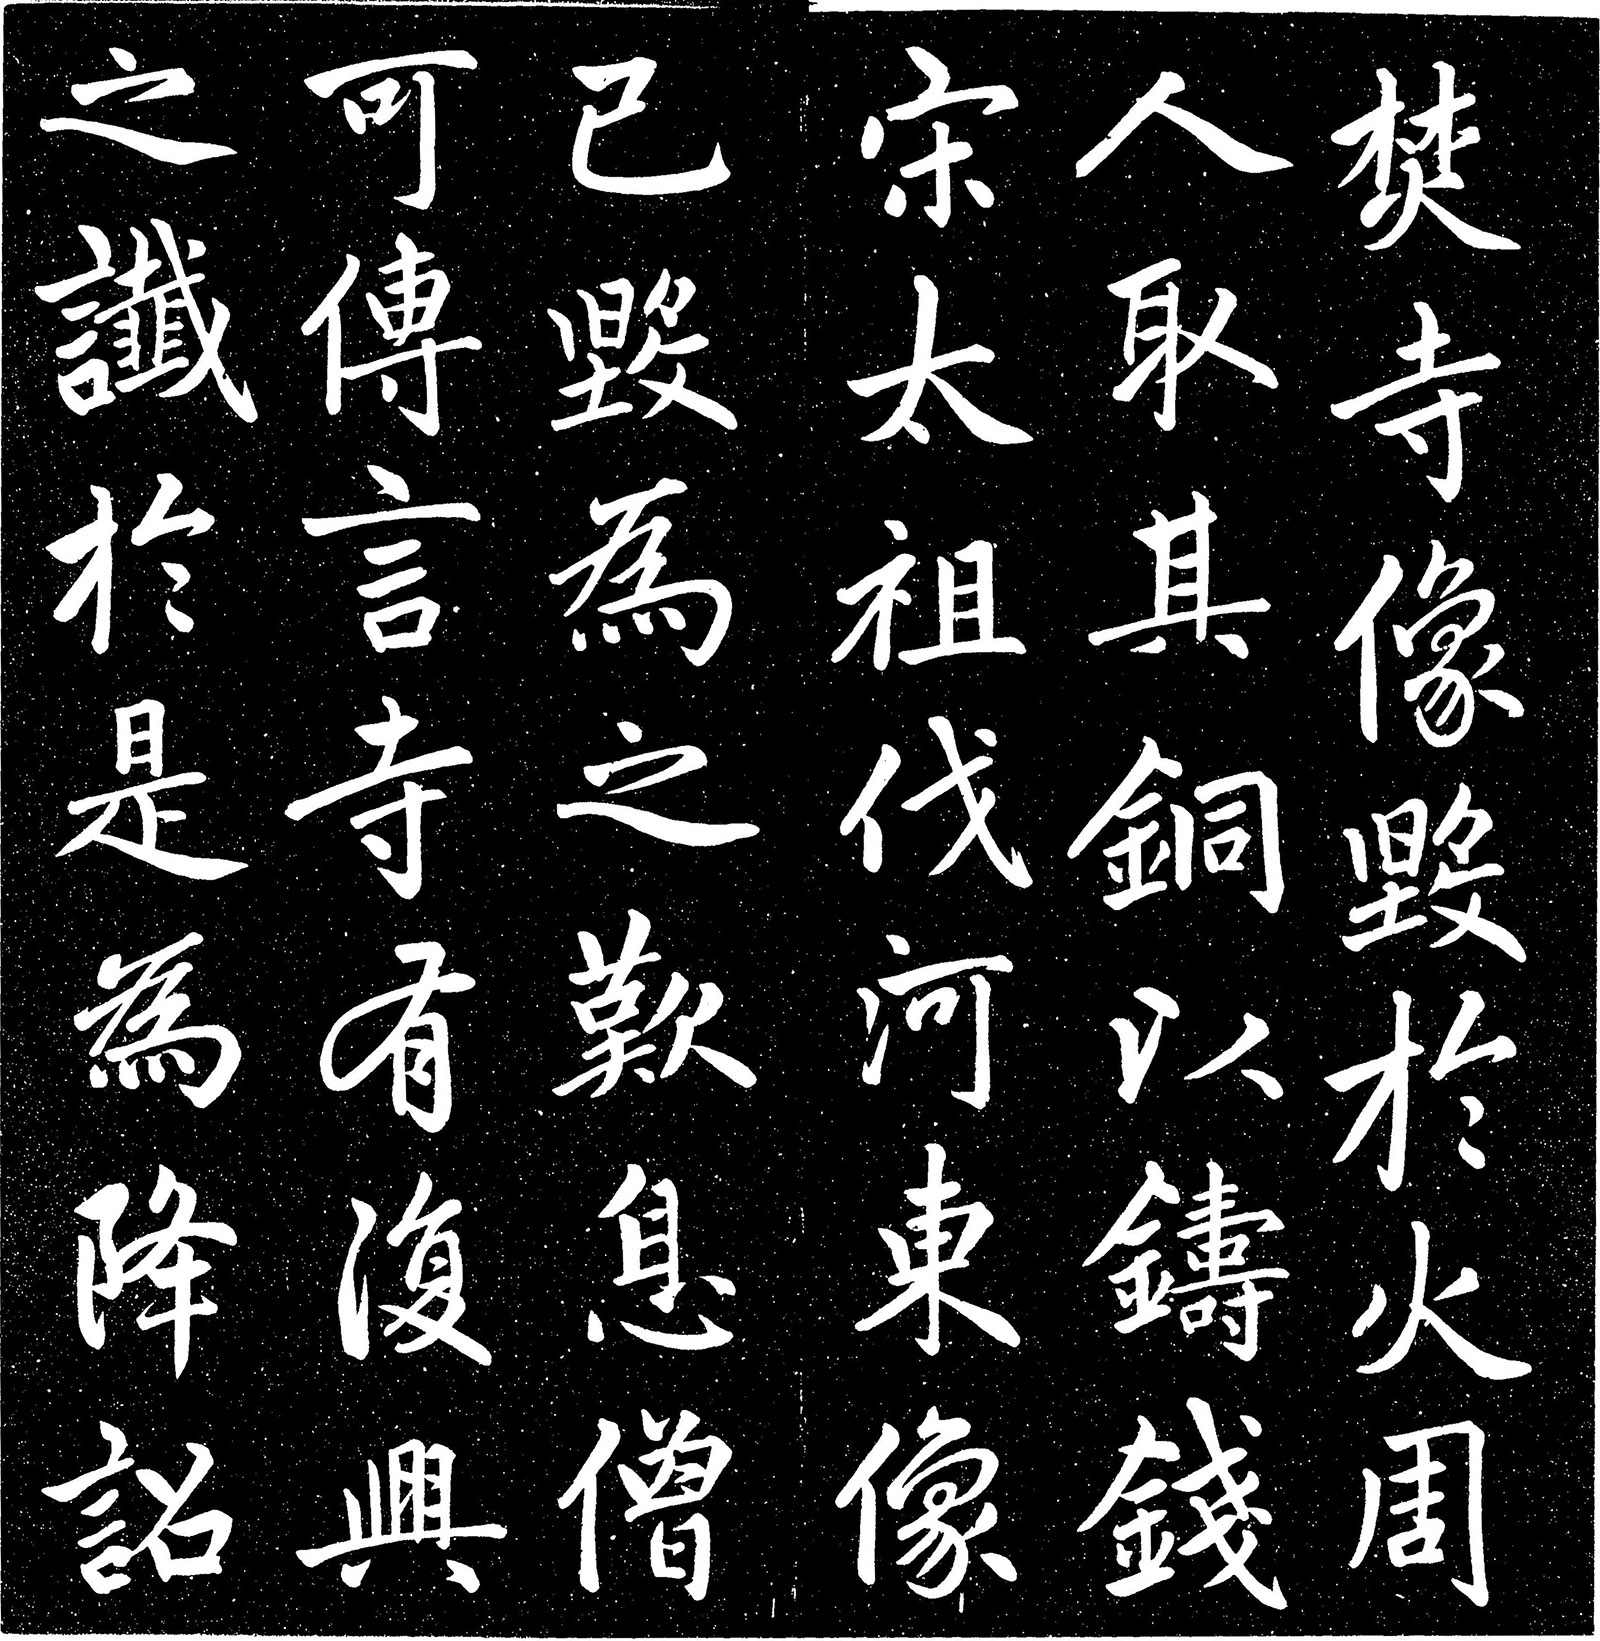 焚寺像毀於火周
人取其銅以鑄錢
宋太祖伐河東像
已毀為之歎息僧
可傳言寺有復興
之讖於是為降詔